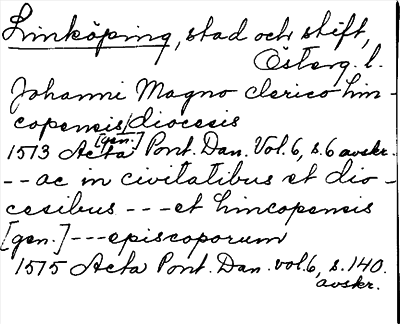 Linköping, stad och stift,
Österg. l.
Johanni Magno clerico Lin-
copensis diocesis
[gen.]
1513 Acta Pont. Dan. Vol. 6, s. 6 avskr.
-- ac in civitatibus et dio-
cesibus --- et Lincopensis
[gen.] --- episcoporum
1515 Acta Pont. Dan. vol. 6, s. 140.
avskr.